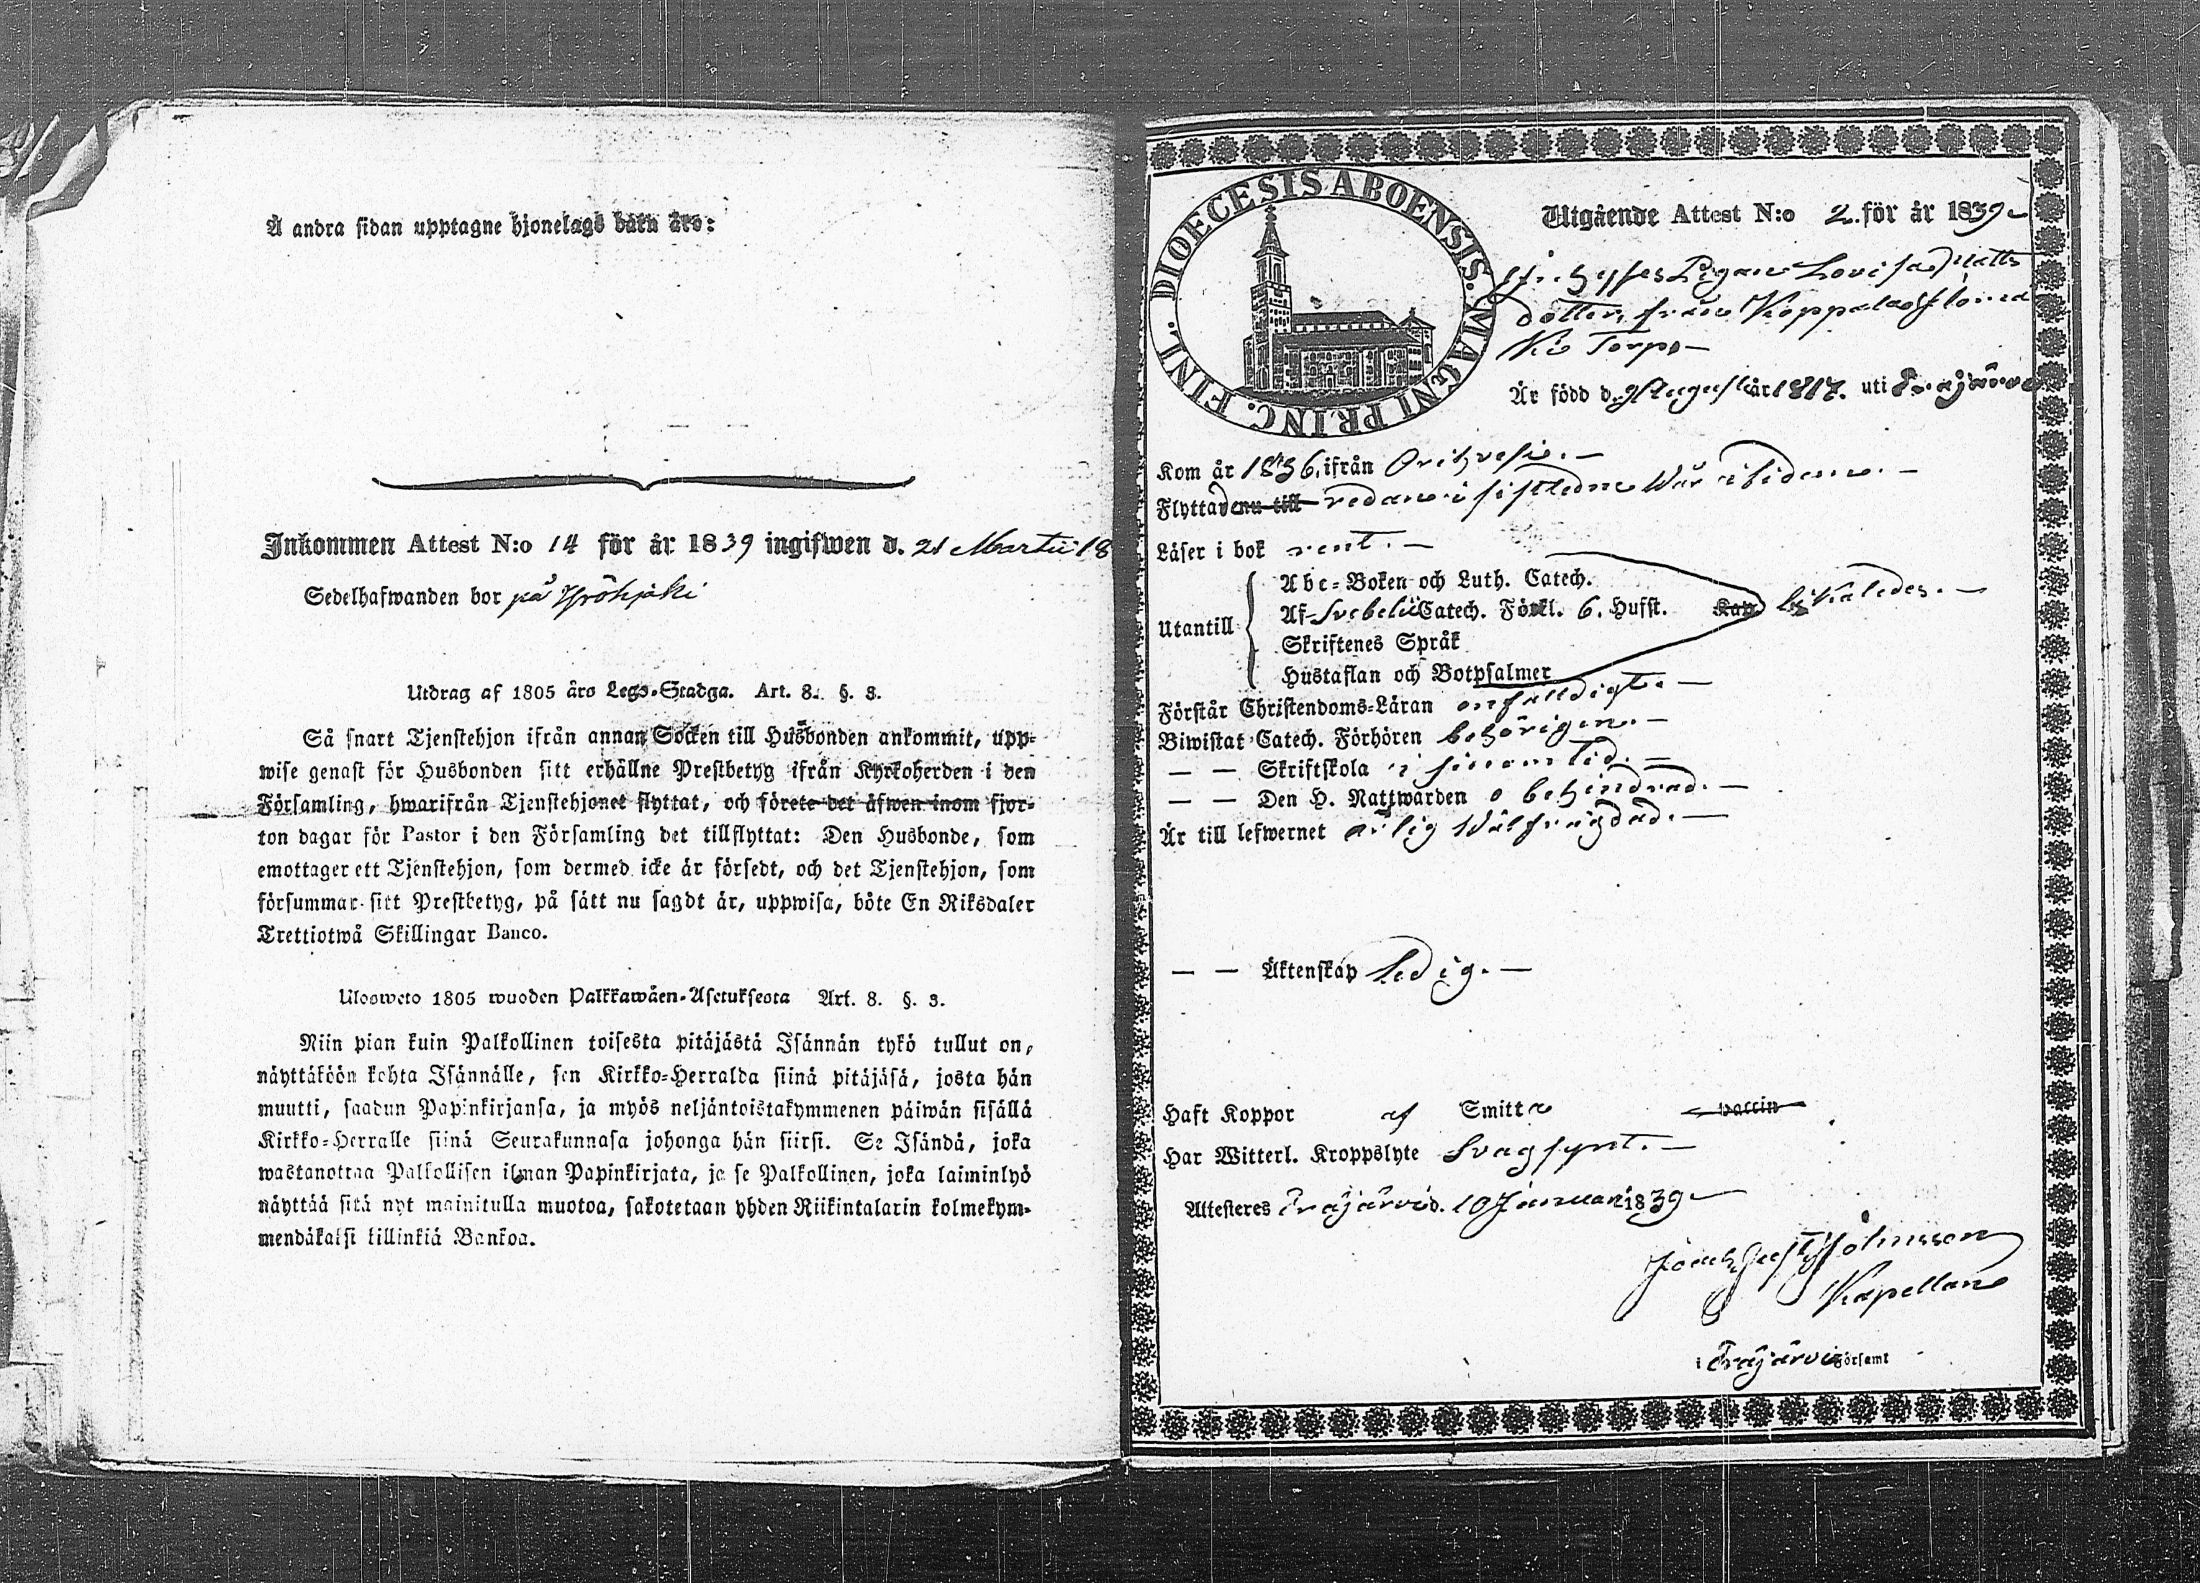 Å andra sidan upptagne hjonelags barn äro:
Inkommen Attest N:o 14 för år 1839 ingifwen d. 21 Martii 18
Sedelhafwanden bor på
Utdrag af 1805 års Lego-Stadga. Art. 8. §. 3.
Så snart Tjenstehjon ifrån annan Socken till Husbonden ankommit, upp-
wise genast för Husbonden sitt erhållne Prestbetyg ifrån Kyrkoherden i den
Församling, hwarifrån Tjenstehjonet flyttat, och förete det äfwen inom fjor-
ton dagar för Pastor i den Församling det tillflyttat: Den Husbonde, som
emottager ett Tjenstehjon, som dermed icke är försedt, och det Tjenstehjon, som
försummar sitt Prestbetyg, på sätt nu sagdt är, uppwisa, böte En Riksdaler
Trettiotwå Skillingar Banco.
Ulosweto 1805 wuoden Palkkawäen-Asetuksesta Art. 8. §. 3.
Niin pian kuin Palkollinen toisesta pitäjästä Isännän tykö tullut on,
näyttäköön kohta Isännälle, sen Kirkko-Herralda siinä pitäjäsä, josta hän
muutti, saadun Papinkirjansa, ja myös neljäntoistakymmenen päiwän sisällä
Kirkko-Herralle siinä Seurakunnasa johonga hän siirsi. Se Isändä, joka
wastanottaa Palkollisen ilman Papinkirjata, ja se Palkollinen, joka laiminlyö
näyttää sitä nyt mainitulla muotoa, sakotetaan yhden Riikintalarin kolmekym-
mendäkaksi killinkiä Bankoa.
DIOECESIS ABOENSIS. MAGNI PRINC. FINL.
Utgående Attest N:o 2. för år 1839
Pigan Lovisa Matts
dotter, från
Torp
Är född d. 9 Augusti år 1817. uti Träjärvi
Kom år 1836, ifrån Orihvesi.
Flyttade nu till redan i sistledne Wår
Läser i bok rent.
Utantill
Abc-Boken och Luth. Catech.
Af Svebelii Catech. Förkl. 6. Hufst. Kap.
Skriftenes Språk
Hustaflan och Botpsalmer
Förstår Christendoms-Läran enfalldigt.
Biwistat Catech. Förhören behörigen.
— — Skriftskola i sinom tid.
— — Den H. Nattwarden obehindrad.
Är till lefwernet ärlig wälfrägdad.
— — Äktenskap ledig.
Haft Koppor af Smitta vaccin
Har Witterl. Kroppslyte Svagsynt.
Attesteres Träjärvi d. 10 Januari 1839
Kapellan
i Träjärvi Församl